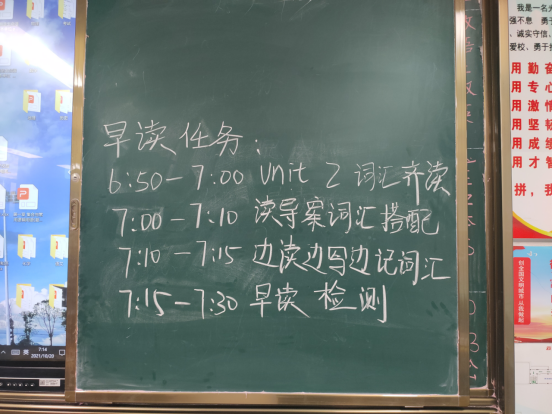 早读任务：
6:50-7:00 Unit 2 词汇齐读
7:00-7:10 读导案词汇搭配
7:10-7:15 边读边写边记词汇
7:15-7:30 早读检测
我是一名光
强不息
诚实守信、
爱校、勇于
用勤奋
用专心
用激情
用坚韧
用成绩
用才智
拼，我
创全国文明城市
从我做起
英
7:14
2021/10/20